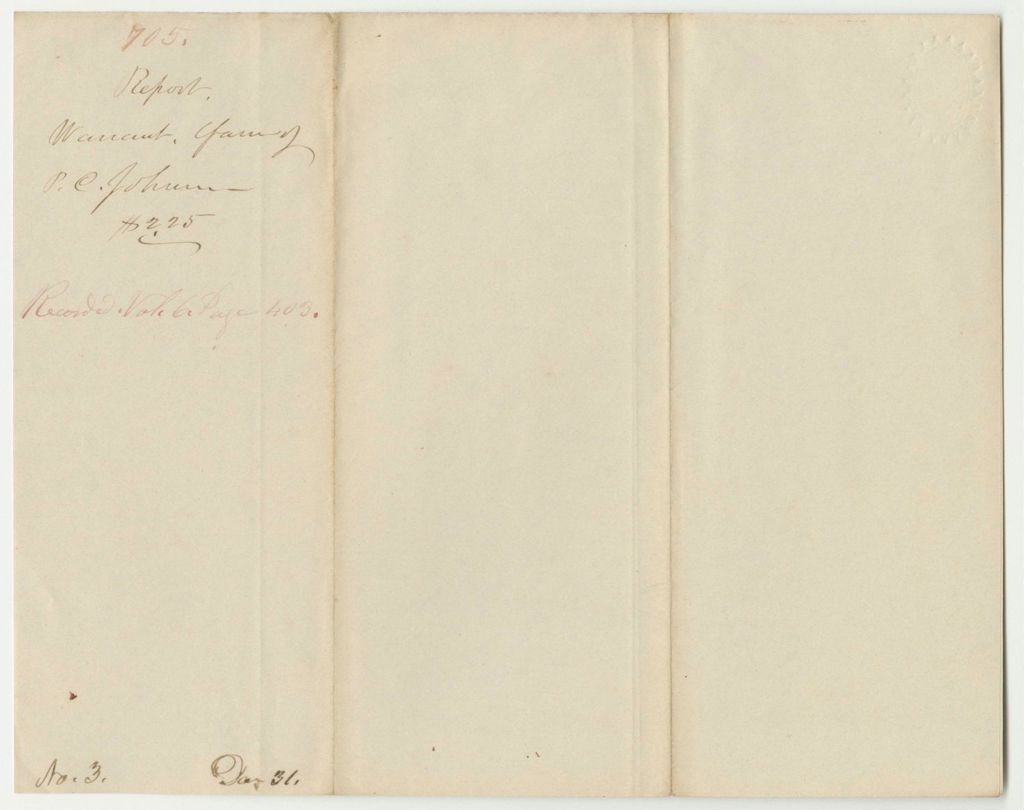 705.
Report.
Warrant. favr of
P. C. Johnson
$225
Recorded. Vol. 6. Page 403.
No. 3.
31.